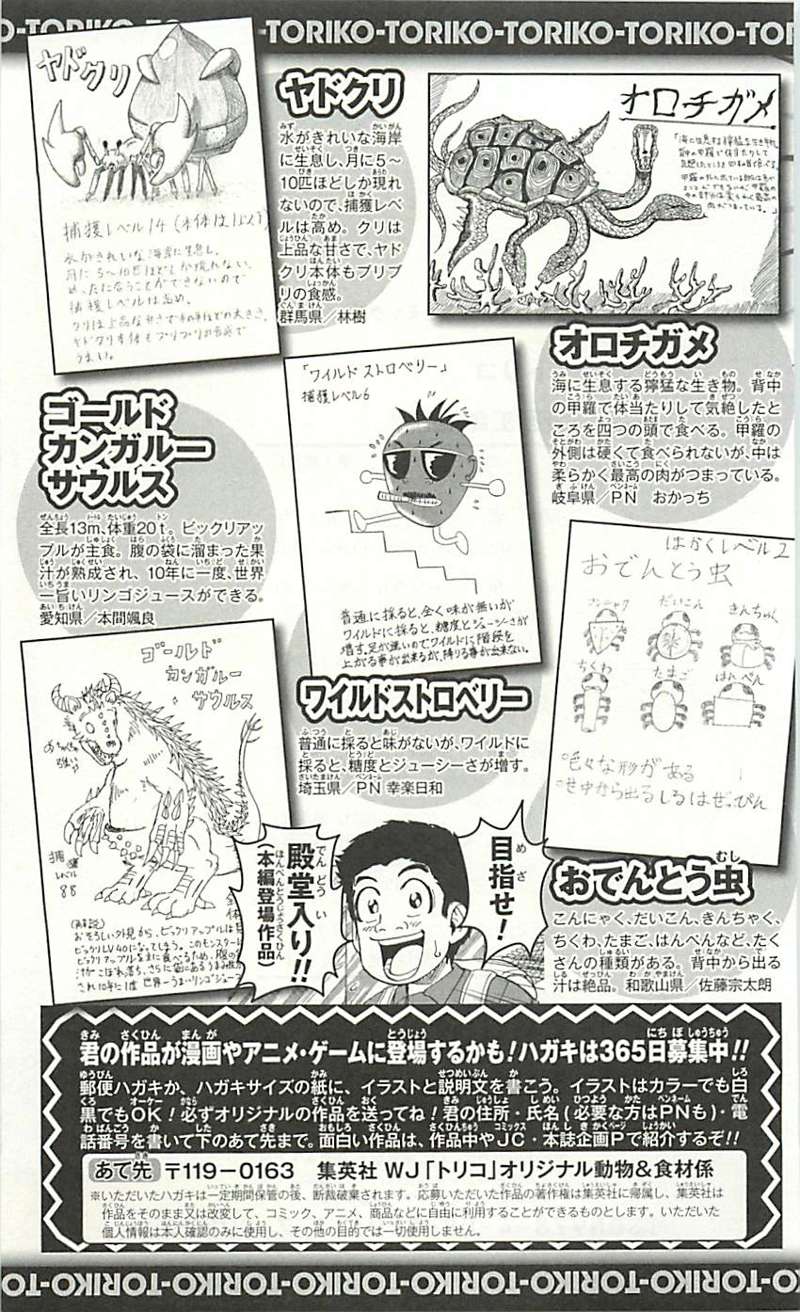 TORIKO-TORIKO-TORIKO-TORIKO-TORIKO
ヤドクリ
捕獲レベル14(本体はレベル1)
水がきれいな海岸に生息し、
月に5〜10匹ほどしか現れない。
めったに会うことができないので
捕獲レベルは高め。
ヤドクリ本体もプリプリの食感で
うまい。
ヤドクリ
水がきれいな海岸
に生息し、月に5〜
10匹ほどしか現れ
ないので、捕獲レベ
ルは高め。クリは
上品な甘さで、ヤド
クリ本体もプリプ
リの食感。
群馬県/林樹
オロチガメ
オロチガメ
海に生息する獰猛な生き物。背中
の甲羅で体当たりして気絶したと
ころを四つの頭で食べる。甲羅の
外側は硬くて食べられないが、中は
柔らかく最高の肉がつまっている。
岐阜県/PN おかっち
「ワイルドストロベリー」
捕獲レベル6
普通に採ると、全く味が無いが
ワイルドに採ると、糖度とジューシーさが
増す。足が速いのでワイルドに階段を
上がる事が出来るが、降りる事が出来ない。
ワイルドストロベリー
普通に採ると味がないが、ワイルドに
採ると、糖度とジューシーさが増す。
埼玉県/PN 幸楽日和
ゴールド
カンガルー
サウルス
全長13m、体重20t。ビックリアッ
プルが主食。腹の袋に溜まった果
汁が熟成され、10年に一度、世界
一旨いリンゴジュースができる。
愛知県/本間颯良
ゴールド
カンガルー
サウルス
捕獲
レベル
88
(解説)
はかくレベル2
おでんとう虫
コンニャク
だいこん
きんちゃく
ちくわ
たまご
はんぺん
○色々な形がある
○せ中から出るしるはぜっぴん
おでんとう虫
こんにゃく、だいこん、きんちゃく、
ちくわ、たまご、はんぺんなど、たく
さんの種類がある。背中から出る
汁は絶品。和歌山県/佐藤宗太朗
目指せ!
殿堂入り!!
(本編登場作品)
君の作品が漫画やアニメ・ゲームに登場するかも!ハガキは365日募集中!!
郵便ハガキか、ハガキサイズの紙に、イラストと説明文を書こう。イラストはカラーでも白
黒でもOK!必ずオリジナルの作品を送ってね!君の住所・氏名(必要な方はPNも)・電
話番号を書いて下のあて先まで。面白い作品は、作品中やJC・本誌企画Pで紹介するぞ!!
あて先 〒119-0163 集英社 WJ「トリコ」オリジナル動物&食材係
※いただいたハガキは一定期間保管の後、断裁破棄されます。応募いただいた作品の著作権は集英社に帰属し、集英社は
作品をそのまま又は改変して、コミック、アニメ、商品などに自由に利用することができるものとします。いただいた
個人情報は本人確認のみに使用し、その他の目的では一切使用しません。
TORIKO-TORIKO-TORIKO-TORIKO-TORIKO